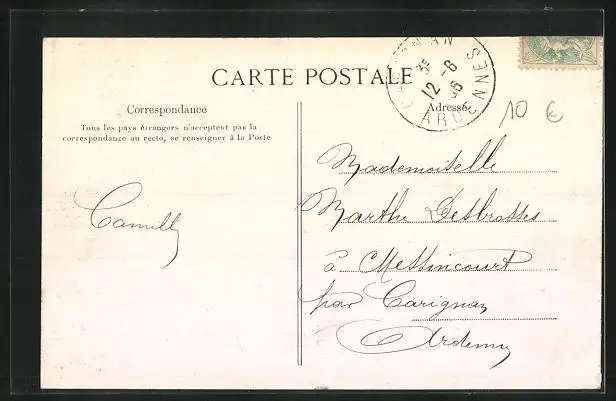 CARTE POSTALE
Correspondance
Tous les pays étrangers n'acceptent pas la
correspondance au recto, se renseigner à la Poste
Camille
CARIGNAN
3E
12 -6
06
ARDENNES
Adresse
10 €
Mademoiselle
Marthe Desbrosses
à Messincourt
par Carignan
Ardennes